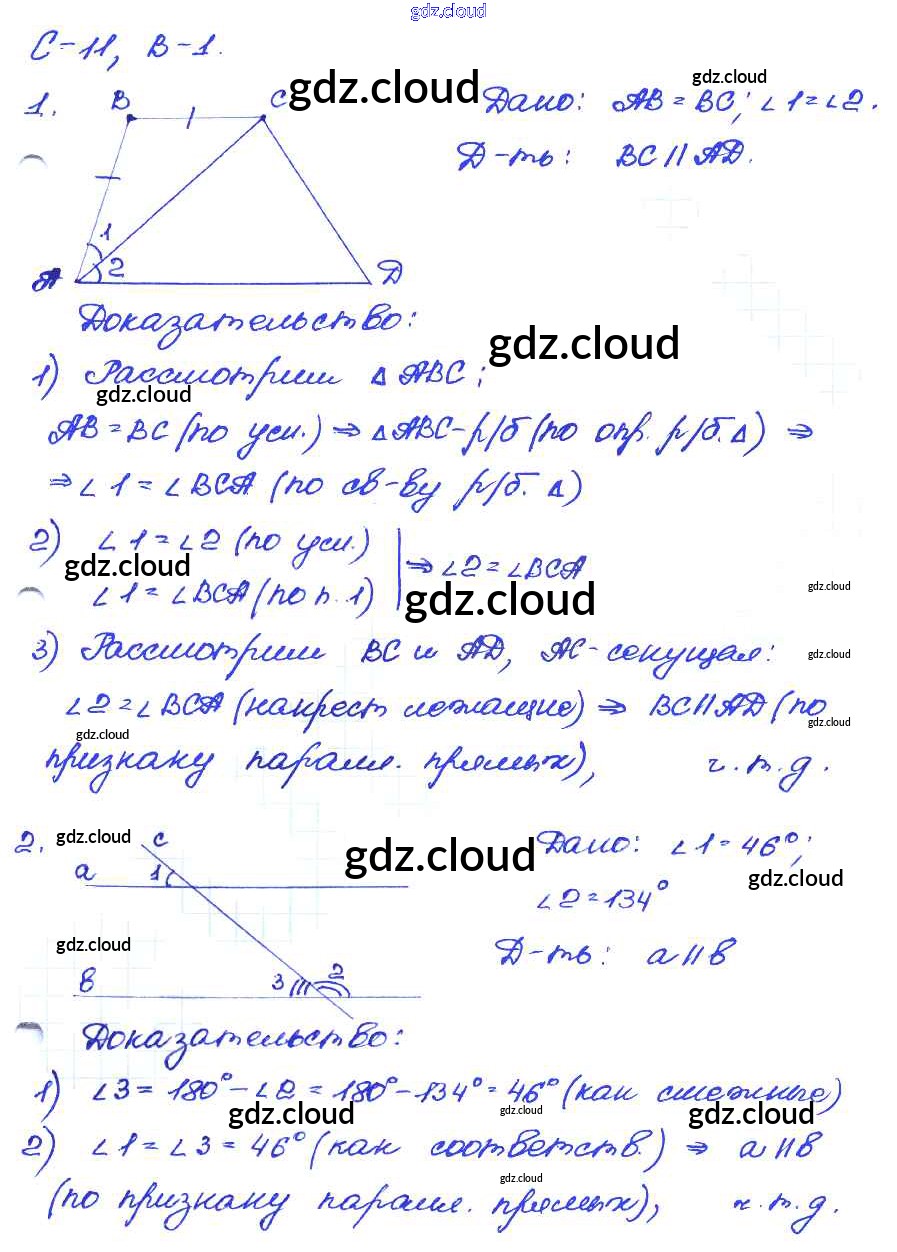 gdz.cloud
С-11, В-1.
1. B C gdz.cloud Дано: AB = BC; ∠1 = ∠2.
gdz.cloud
Д-ть: BC || AD.
1
2
A D
Доказательство:
gdz.cloud
1) Рассмотрим △ABC;
gdz.cloud
AB = BC (по усл.) ⇒ △ABC - р/б (по опр. р/б. △) ⇒
⇒ ∠1 = ∠BCA (по св-ву р/б. △)
2) ∠1 = ∠2 (по усл.)
gdz.cloud
⇒ ∠2 = ∠BCA
∠1 = ∠BCA (по п. 1)
gdz.cloud
gdz.cloud
3) Рассмотрим BC и AD, AC - секущая:
gdz.cloud
∠2 = ∠BCA (накрест лежащие) ⇒ BC || AD (по
gdz.cloud
gdz.cloud
признаку паралл. прямых), ч.т.д.
2. gdz.cloud c gdz.cloud Дано: ∠1 = 46°;
a 1 gdz.cloud
∠2 = 134°
gdz.cloud Д-ть: a || b
b 3 2
Доказательство:
1) ∠3 = 180° - ∠2 = 180° - 134° = 46° (как смежные)
gdz.cloud gdz.cloud gdz.cloud
2) ∠1 = ∠3 = 46° (как соответств.) ⇒ a || b
gdz.cloud
(по признаку паралл. прямых), ч.т.д.